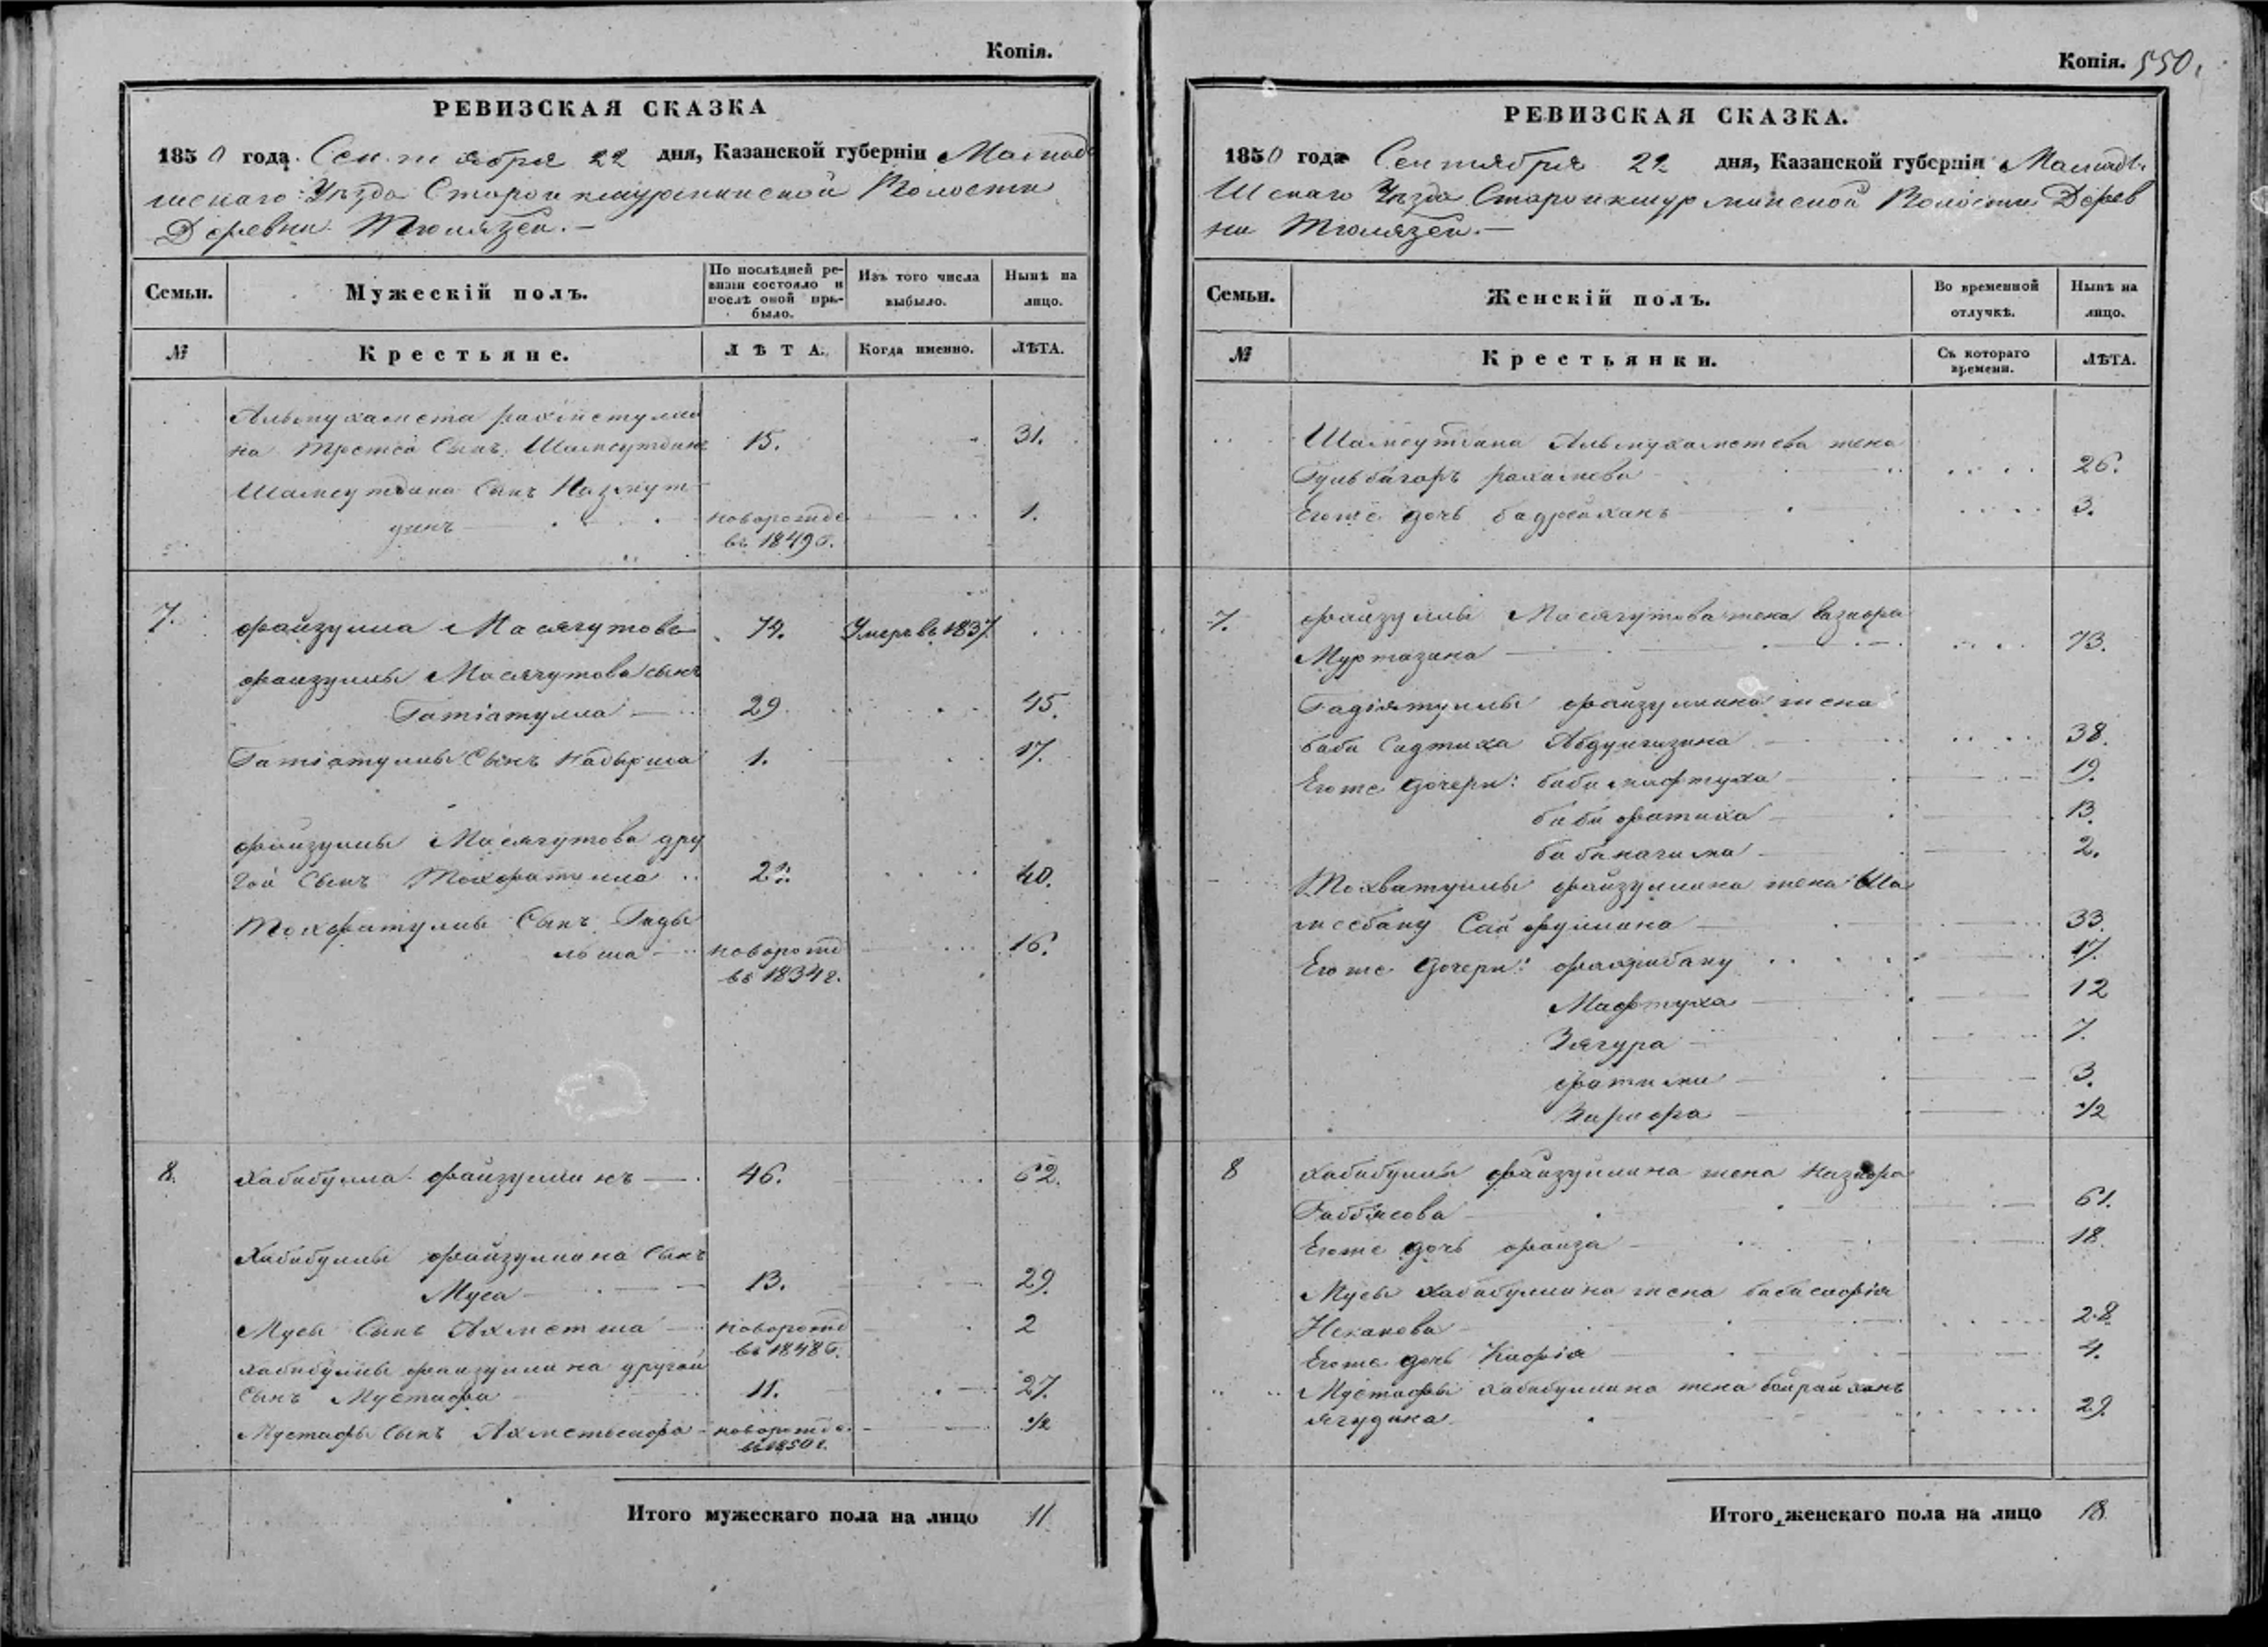 Копія.
РЕВИЗСКАЯ СКАЗКА
1850 года Сентября 22 дня, Казанской губерніи Мамад
шскаго Уѣзда Старо Волости
Деревни Тюлязей. —
Семьи.
Мужескій полъ.
По послѣдней ре-
визіи состояло и
послѣ оной при-
было.
Изъ того числа
выбыло.
Нынѣ на
лицо.
№
Крестьяне.
ЛѢТА.
Когда именно.
ЛѢТА.
Альмухамета рахметулли
на Третей Сынъ Шамсутдинъ 15. 31.
Шамсутдина Сынъ Назмут
динъ новорожде 1.
въ 1849 г.
7. файзулла Масягутовъ 74. Умеръ въ 1837.
файзуллы Масягутова сынъ
Гатіатулла 29 45.
Гатіатуллы Сынъ Надырша 1. 17.
файзуллы Масягутова дру
гой Сынъ Тохфатулла 40.
Тохфатуллы Сынъ Гады
льша новорожд 16.
въ 1834 г.
8. Хабибулла файзуллинъ 46. 62.
Хабибуллы файзуллина Сынъ
Муса 13. 29.
Мусы Сынъ Ахметша новорожд 2
въ 1848 г.
хабибуллы файзуллина другой
Сынъ Мустафа 11. 27.
Мустафы Сынъ Ахметсафа новорожде. 1/2
въ 1850 г.
Итого мужескаго пола на лицо 11
Копія. 550.
РЕВИЗСКАЯ СКАЗКА.
1850 года Сентября 22 дня, Казанской губерніи Мамады
шскаго Уѣзда Старо Волости Дерев
ни Тюлязей. —
Семьи.
Женскій полъ.
Во временной
отлучкѣ.
Нынѣ на
лицо.
№
Крестьянки.
Съ котораго
времени.
ЛѢТА.
Шамсутдина Альмухаметева жена
Гульбагаръ рахмева 26.
Егоже дочь бадрейханъ 3.
7. файзуллы Масягутова жена
Муртазина 73.
Гадіятуллы файзуллина жена
биби Садтиха Абдулгазина 38.
Егоже дочери: биби мафтуха 19.
биби фатиха 13.
2.
Тохватуллы файзуллина жена Ша
мсебану Сайфуллина 33.
Егоже дочери: 17.
Мафтуха 12
Зягура 7.
фатима 3.
Зарифа 1/2
8 хабибуллы файзуллина жена Назифа
Габбясова 61.
Егоже дочь фаиза 18.
Мусы хабибуллина жена бибисафія
28.
Егоже дочь Кафія 4.
Мустафы хабибуллина жена байрайханъ
ягудина 29.
Итого женскаго пола на лицо 18